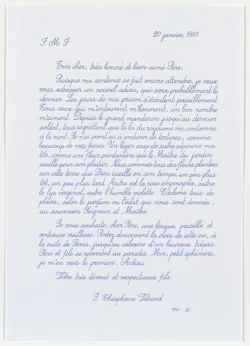 J M J
20 janvier 1861.
Très cher, très honoré et bien-aimé Père,
Puisque ma sentence se fait encore attendre, je veux
vous adresser un nouvel adieu, qui sera probablement le
dernier. Les jours de ma prison s'écoulent paisiblement.
Tous ceux qui m'entourent m'honorent, un bon nombre
m'aiment. Depuis le grand mandarin jusqu'au dernier
soldat, tous regrettent que la loi du royaume me condamne
à la mort. Je n'ai point eu à endurer de tortures, comme
beaucoup de mes frères. Un léger coup de sabre séparera ma
tête, comme une fleur printanière que le Maître du jardin
cueille pour son plaisir. Nous sommes tous des fleurs plantées
sur cette terre que Dieu cueille en son temps, un peu plus
tôt, un peu plus tard. Autre est la rose empourprée, autre
le lys virginal, autre l'humble violette. Tâchons tous de
plaire, selon le parfum ou l'éclat qui nous sont donnés,
au souverain Seigneur et Maître.
Je vous souhaite, cher Père, une longue, paisible et
vertueuse vieillesse. Portez doucement la croix de cette vie, à
la suite de Jésus, jusqu'au calvaire d'un heureux trépas.
Père et fils se reverront au paradis. Moi, petit éphémère,
je m'en vais le premier. Adieu.
Votre très dévoué et respectueux fils.
J. Théophane Vénard